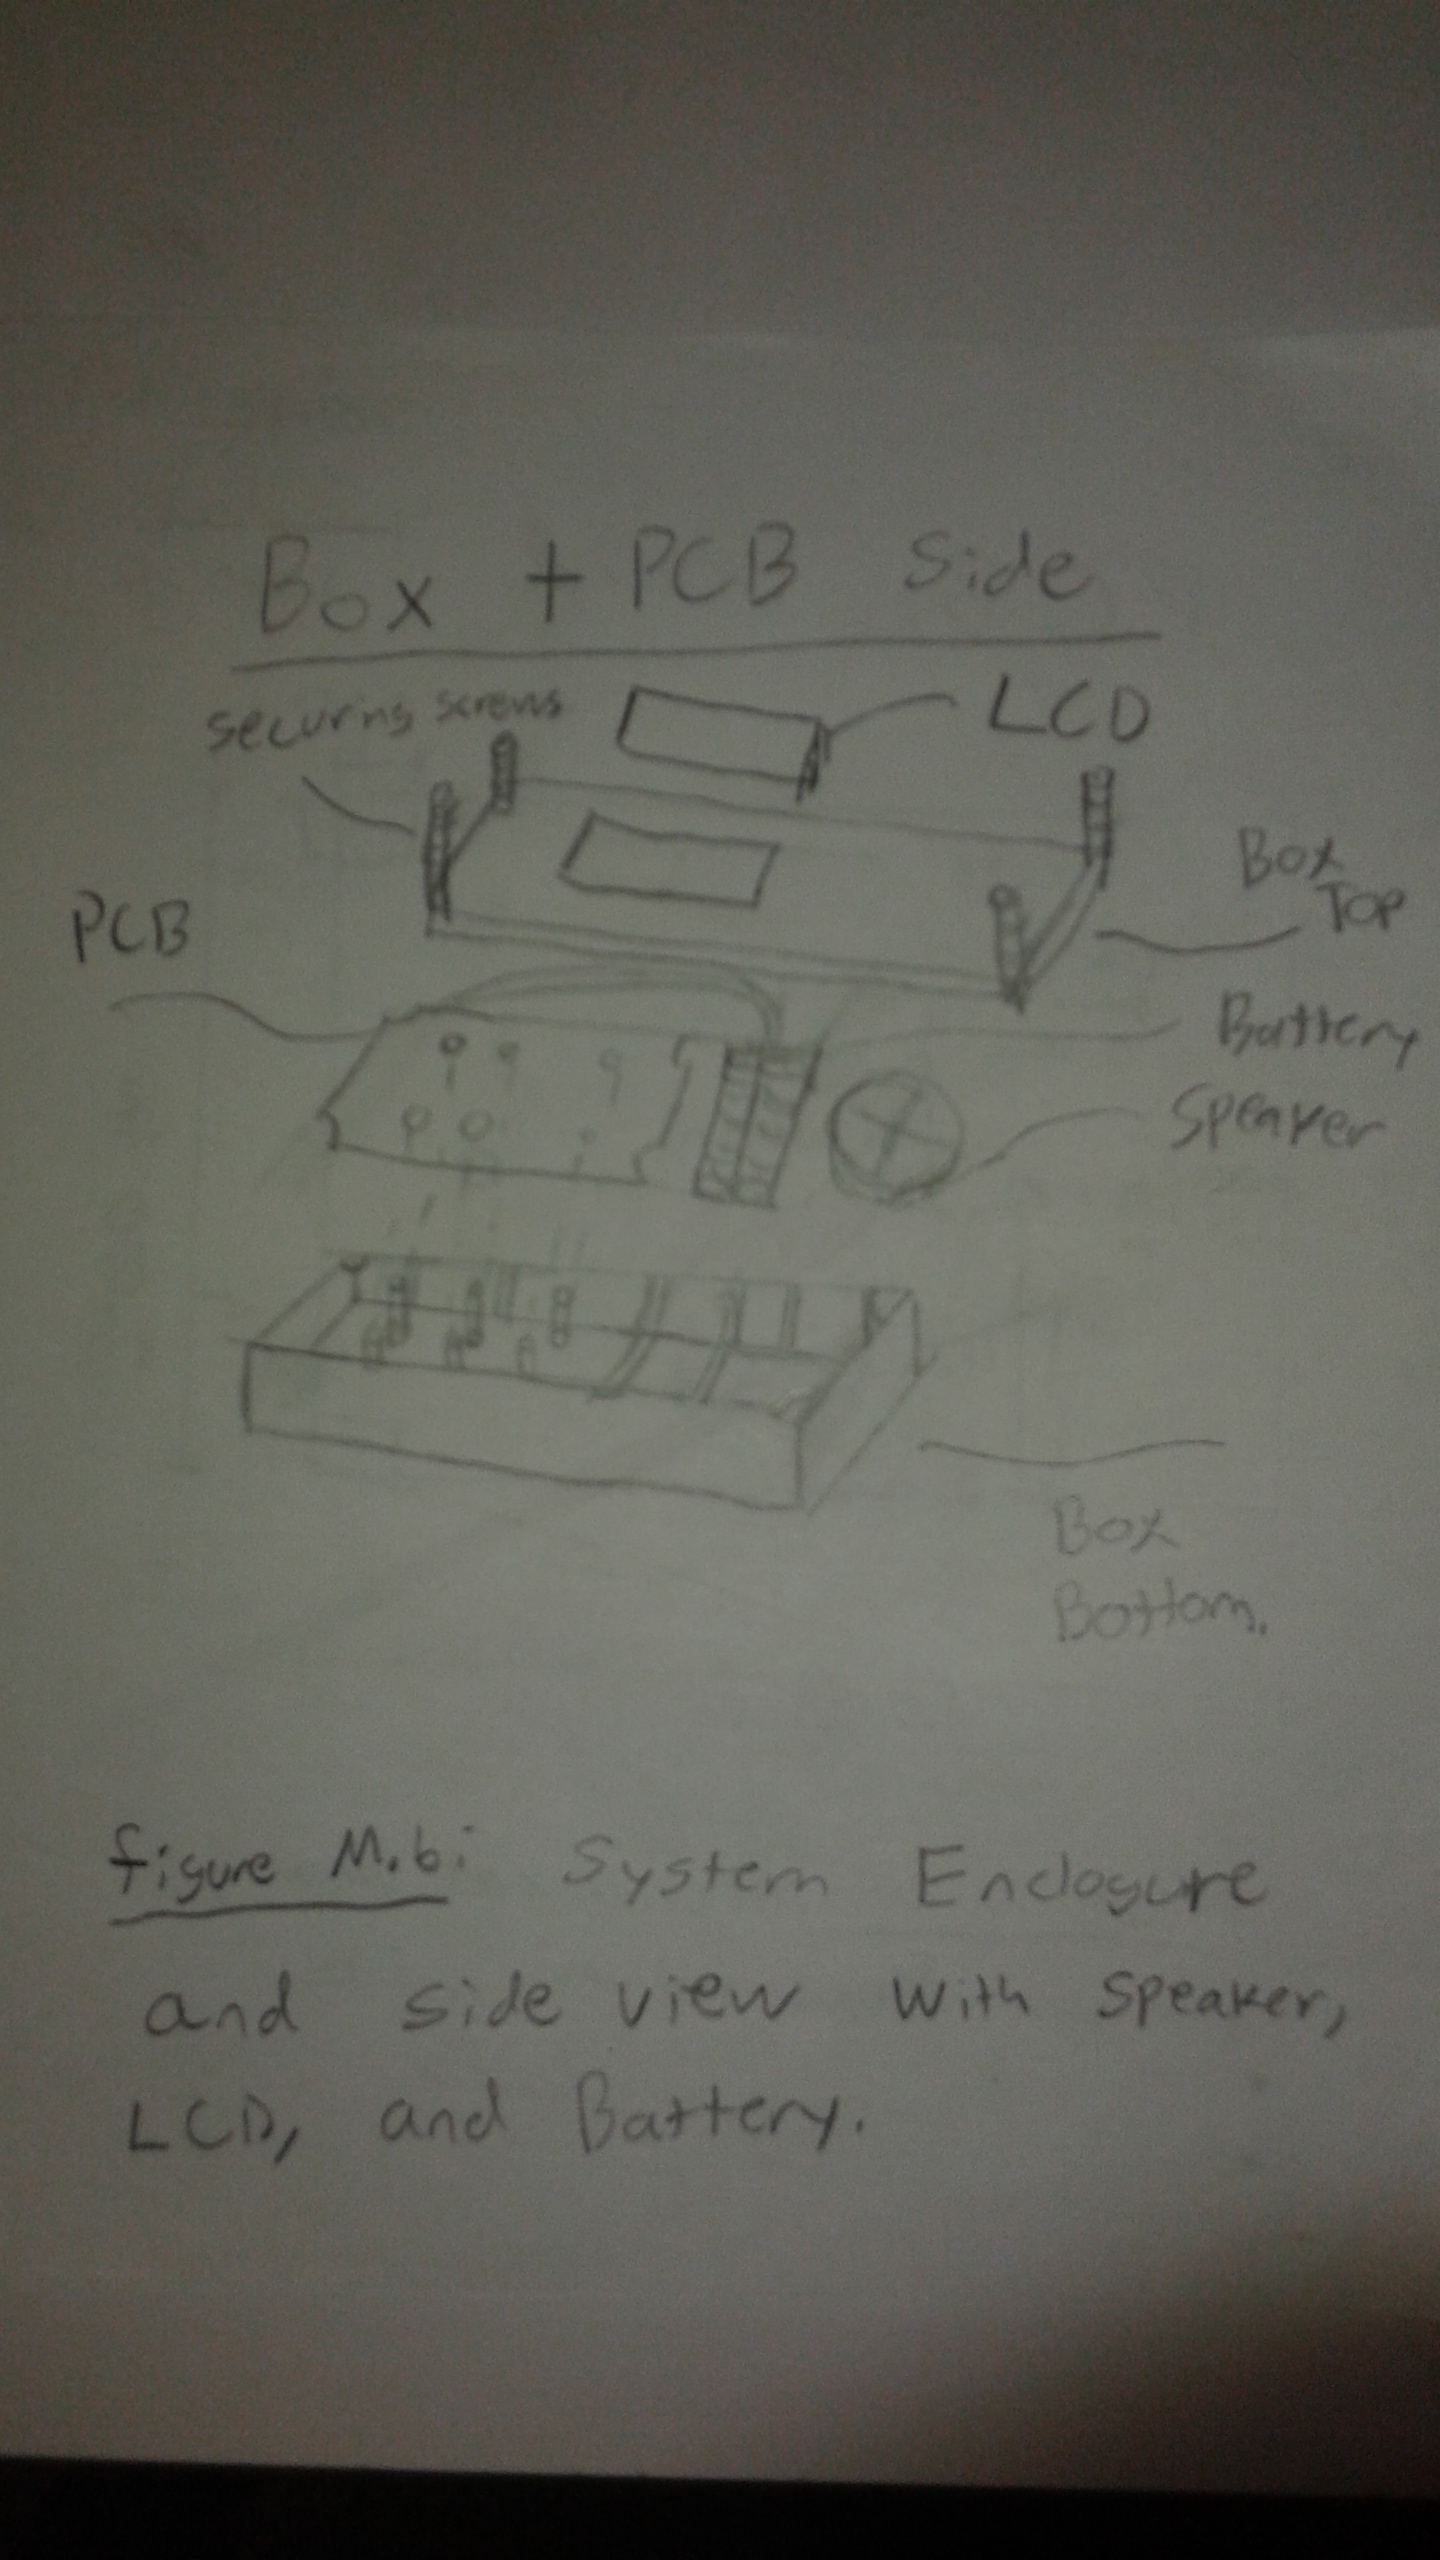 Box + PCB Side
securing screws
LCD
Box
Top
PCB
Battery
Speaker
Box
Bottom.
figure M.b: System Enclosure
and side view with speaker,
LCD, and Battery.